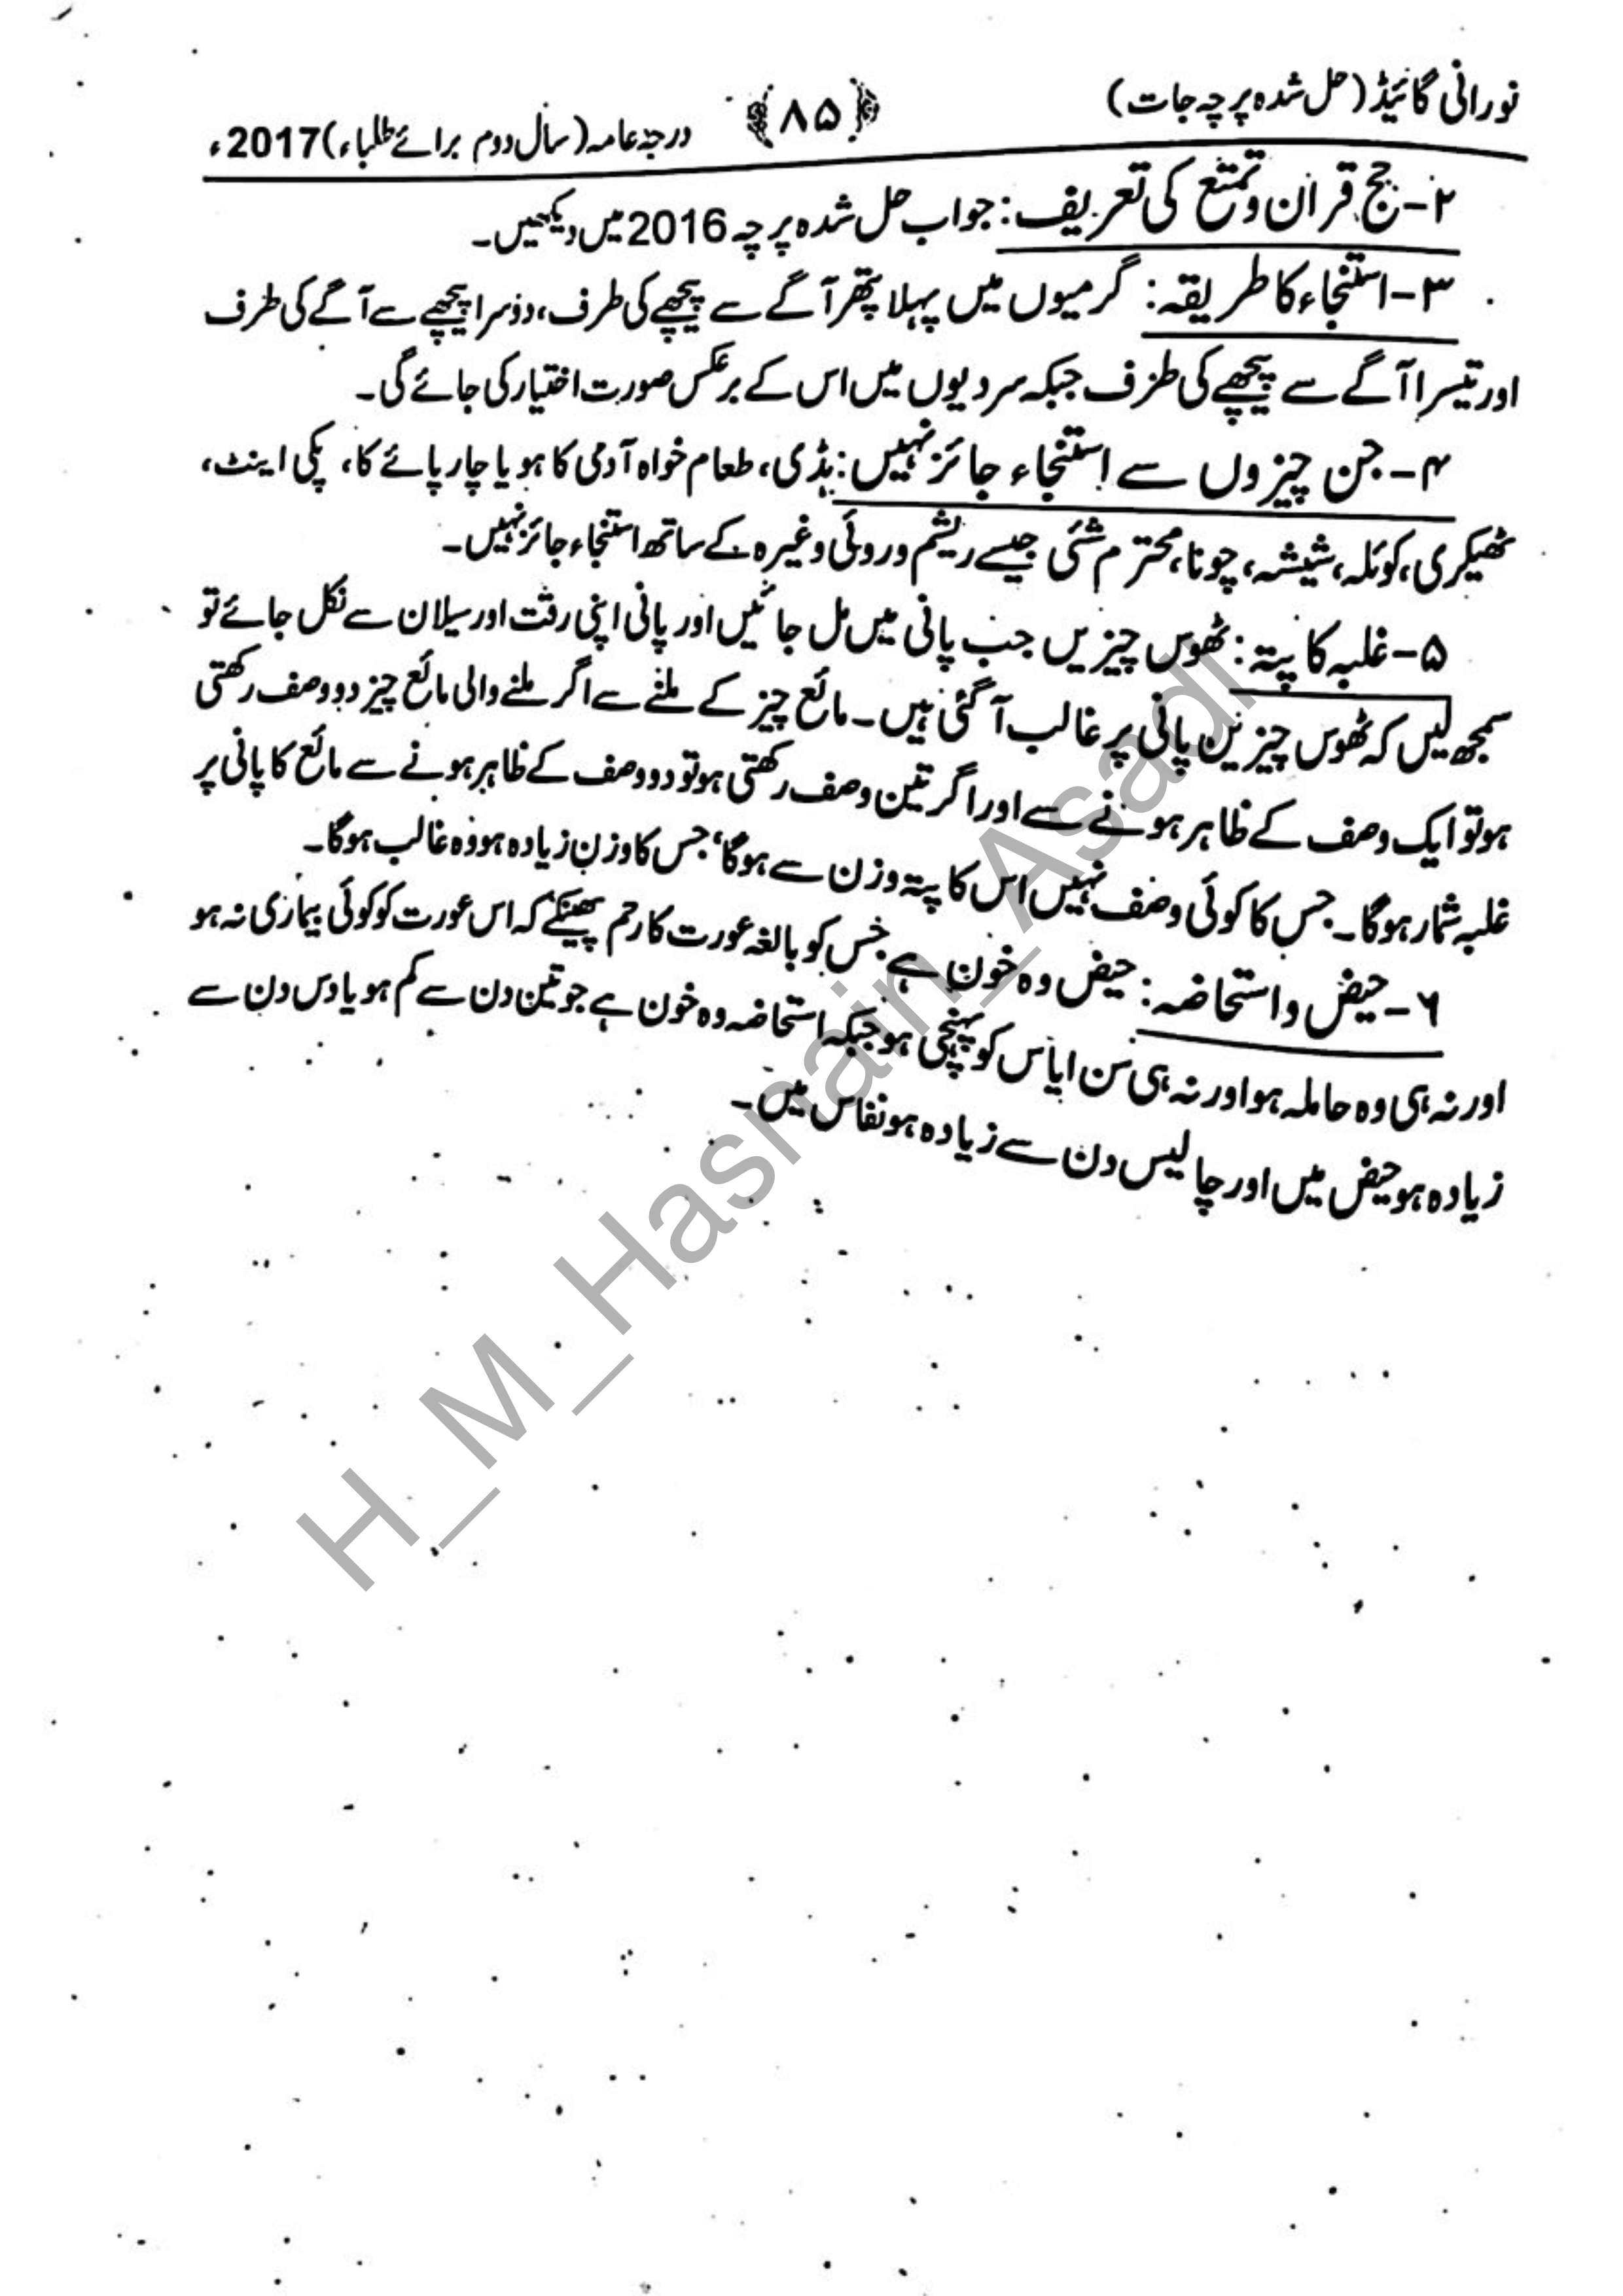 نورانی گائیڈ (حل شدہ پرچہ جات) ﴿۸۵﴾ درجہ عامہ (سال دوم برائے طلباء) 2017ء
۲- حج قران و تمتع کی تعریف: جواب حل شدہ پرچہ 2016 میں دیکھیں۔
۳- استنجاء کا طریقہ: گرمیوں میں پہلا پتھر آگے سے پیچھے کی طرف، دوسرا پیچھے سے آگے کی طرف
اور تیسرا آگے سے پیچھے کی طرف جبکہ سردیوں میں اس کے برعکس صورت اختیار کی جائے گی۔
۴- جن چیزوں سے استنجاء جائز نہیں: ہڈی، طعام خواہ آدمی کا ہو یا چارپائے کا، پکی اینٹ،
ٹھیکری، کوئلہ، شیشہ، چونا، محترم شئی جیسے ریشم و روئی وغیرہ کے ساتھ استنجاء جائز نہیں۔
۵- غلبہ کا پتہ: ٹھوس چیزیں جب پانی میں مل جائیں اور پانی اپنی رقت اور سیلان سے نکل جائے تو
سمجھ لیں کہ ٹھوس چیزیں پانی پر غالب آ گئی ہیں۔ مائع چیز کے ملنے سے اگر ملنے والی مائع چیز دو وصف رکھتی
ہو تو ایک وصف کے ظاہر ہونے سے اور اگر تین وصف رکھتی ہو تو دو وصف کے ظاہر ہونے سے مائع کا پانی پر
غلبہ شمار ہوگا۔ جس کا کوئی وصف نہیں اس کا پتہ وزن سے ہوگا، جس کا وزن زیادہ ہو وہ غالب ہوگا۔
۶- حیض و استحاضہ: حیض وہ خون ہے جس کو بالغہ عورت کا رحم پھینکے کہ اس عورت کو کوئی بیماری نہ ہو
اور نہ ہی وہ حاملہ ہو اور نہ ہی سن ایاس کو پہنچی ہو جبکہ استحاضہ وہ خون ہے جو تین دن سے کم ہو یا دس دن سے
زیادہ ہو حیض میں اور چالیس دن سے زیادہ ہو نفاس میں۔
H_M_Hasnain_Asadi